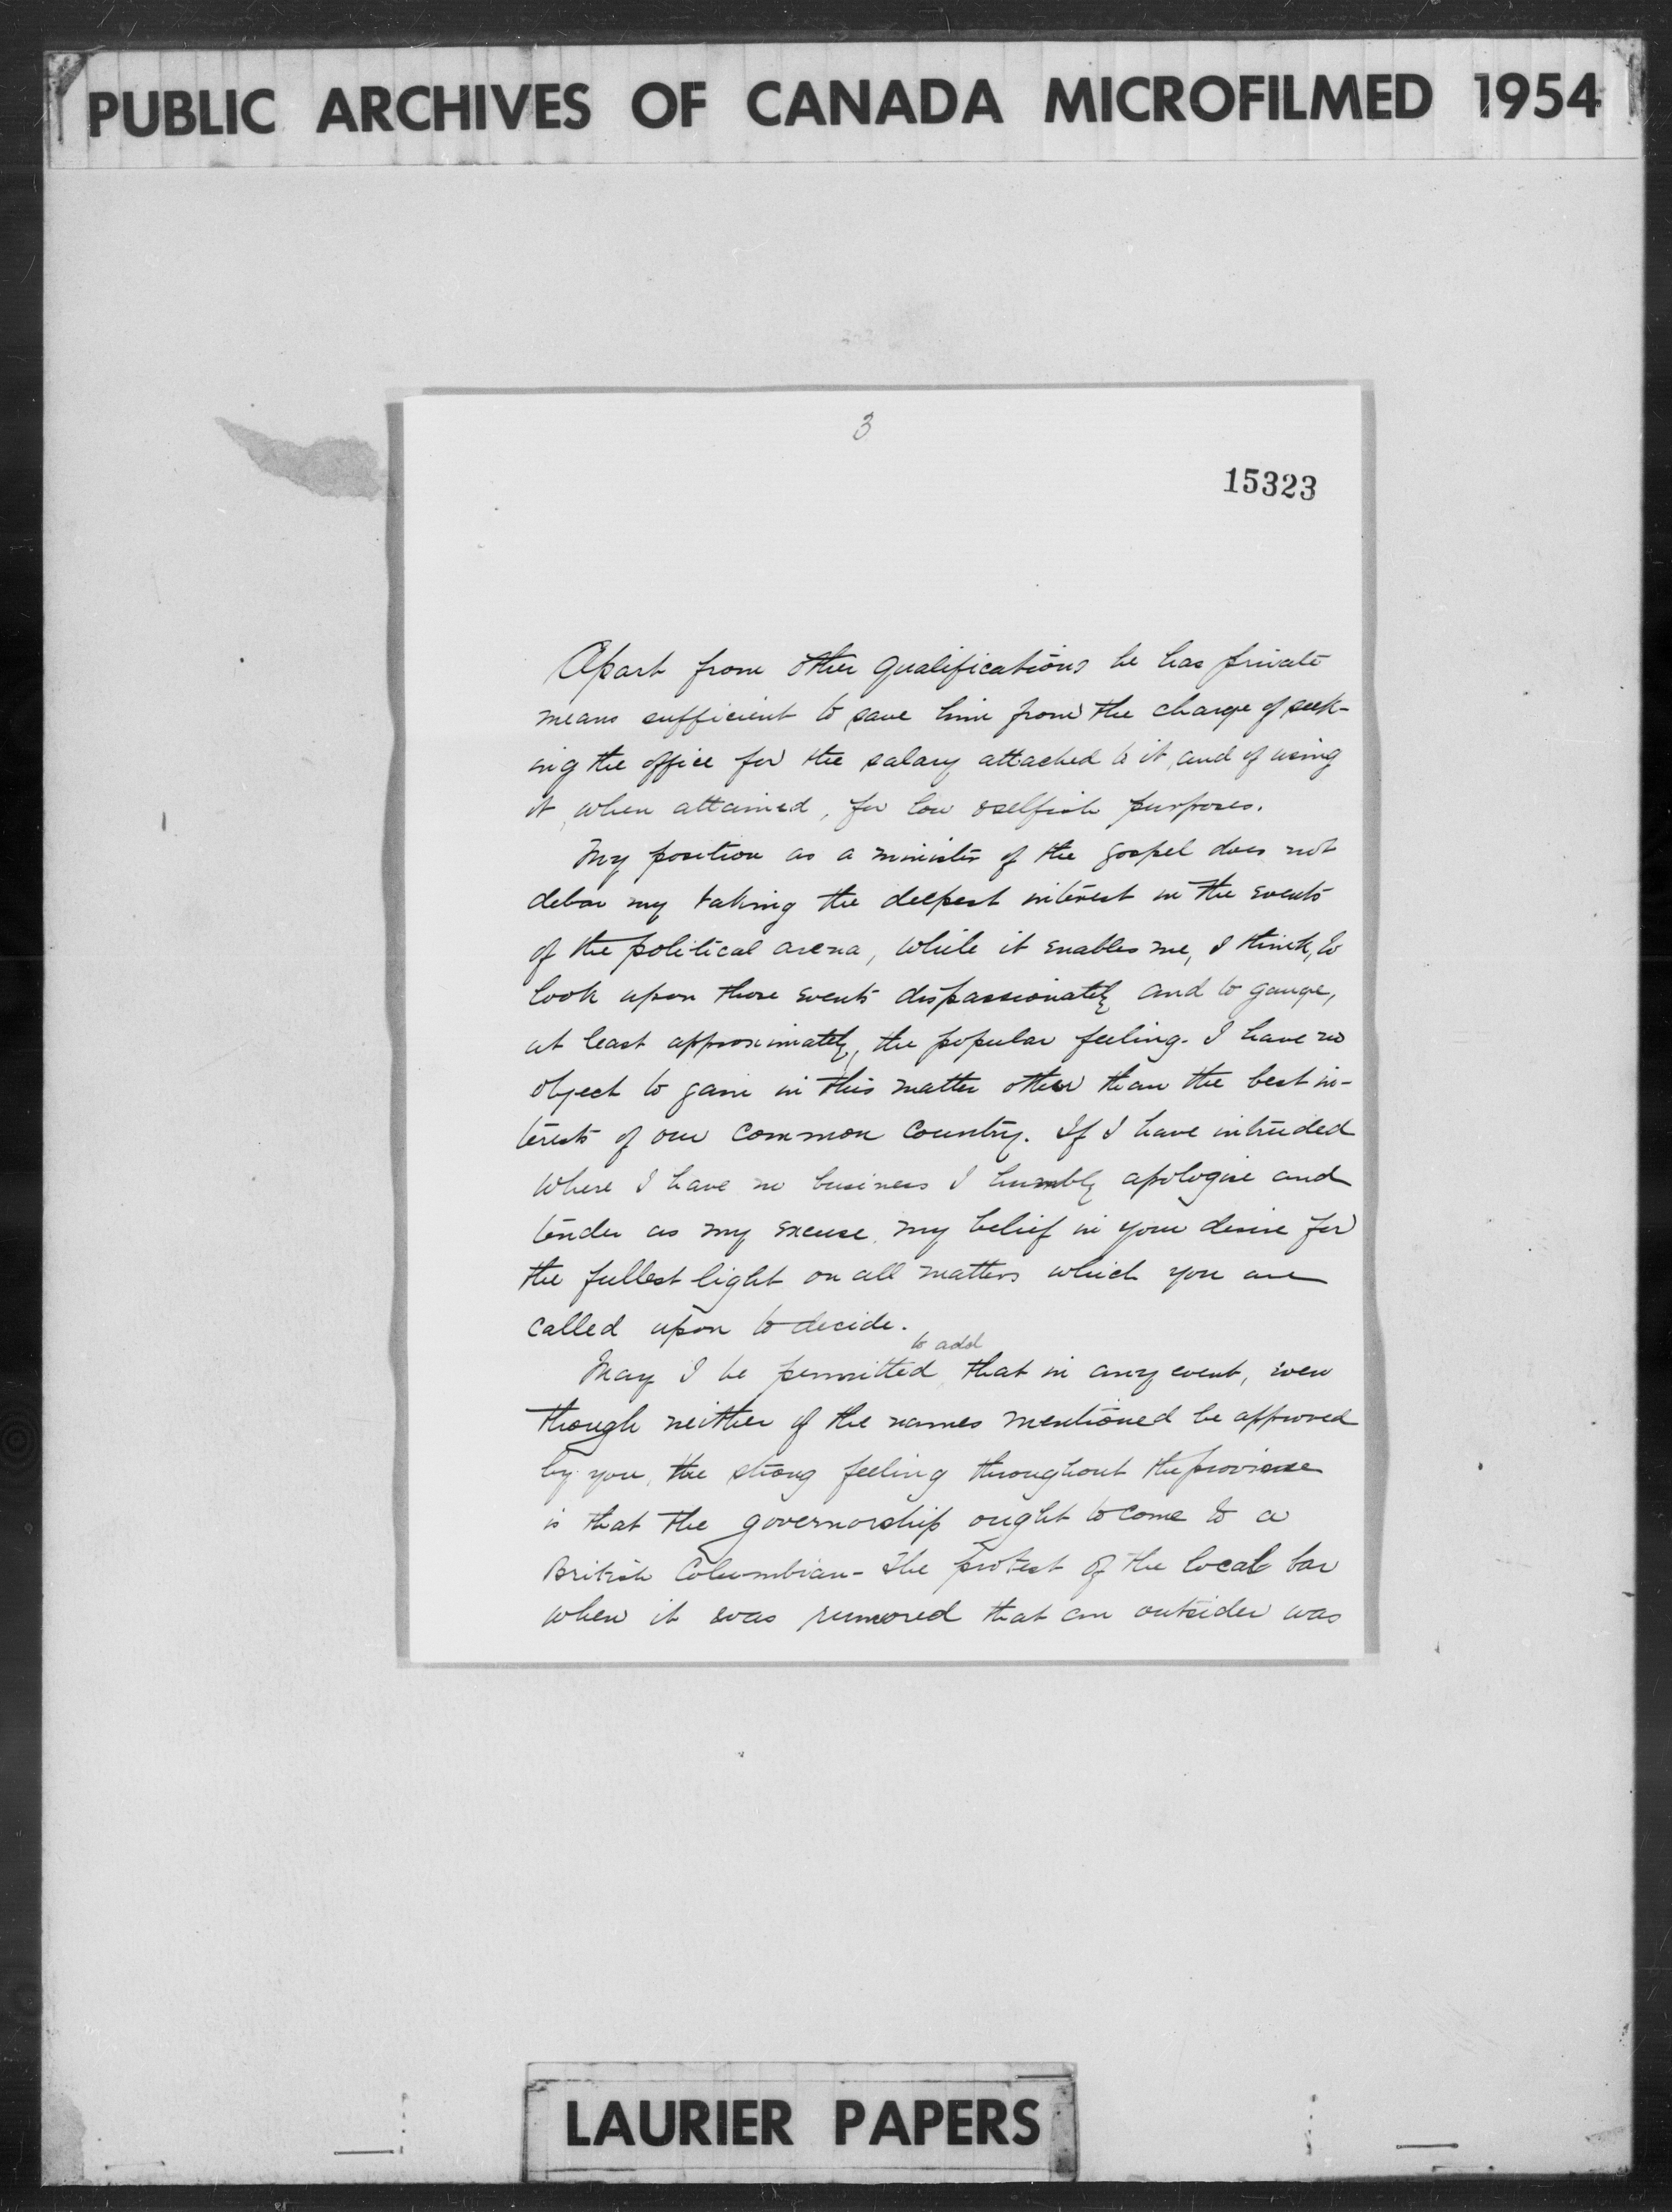 PUBLIC ARCHIVES OF CANADA MICROFILMED 1954
3
15323
Apart from other qualifications he has private
means sufficient to save him from the charge of seek-
ing the office for the salary attached to it, and of using
it, when attained, for low selfish purposes.
My position as a minister of the gospel does not
debar my taking the deepest interest in the events
of the political arena, while it enables me, I think, to
look upon those events dispassionately and to gauge,
at least approximately, the popular feeling. I have no
object to gain in this matter other than the best in-
terests of our common country. If I have intruded
where I have no business I humbly apologise and
tender as my excuse, my belief in your desire for
the fullest light on all matters which you are
called upon to decide.
to add
May I be permitted that in any event, even
though neither of the names mentioned be approved
by you, the strong feeling throughout the province
is that the governorship ought to come to a
British Columbian - The protest of the local bar
when it was rumored that an outsider was
LAURIER PAPERS